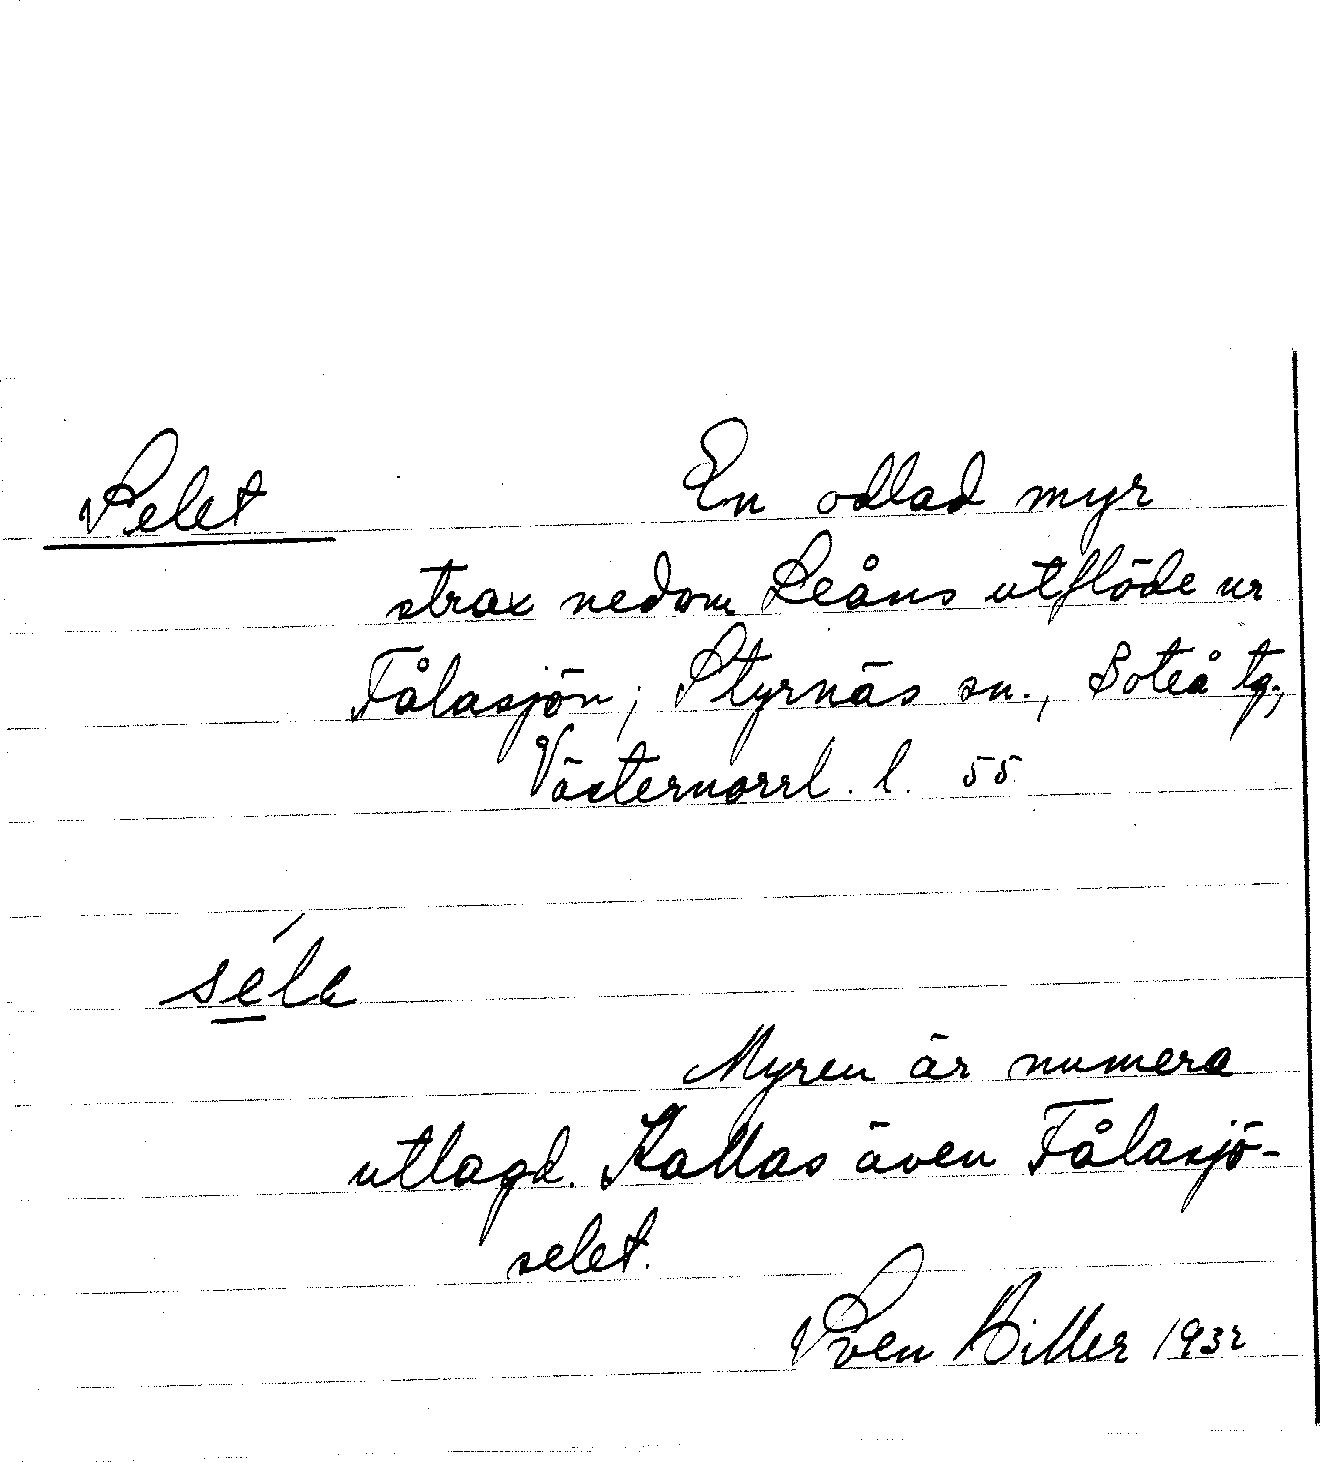 Selet
En odlad myr
strax nedom Leåns utflöde ur
Fålasjön; Styrnäs sn., Boteå tg.,
Västernorrl. l. 55
séle
Myren är numera
utlagd. Kallas även Fålasjö-
selet.
Sven Hiller 1932